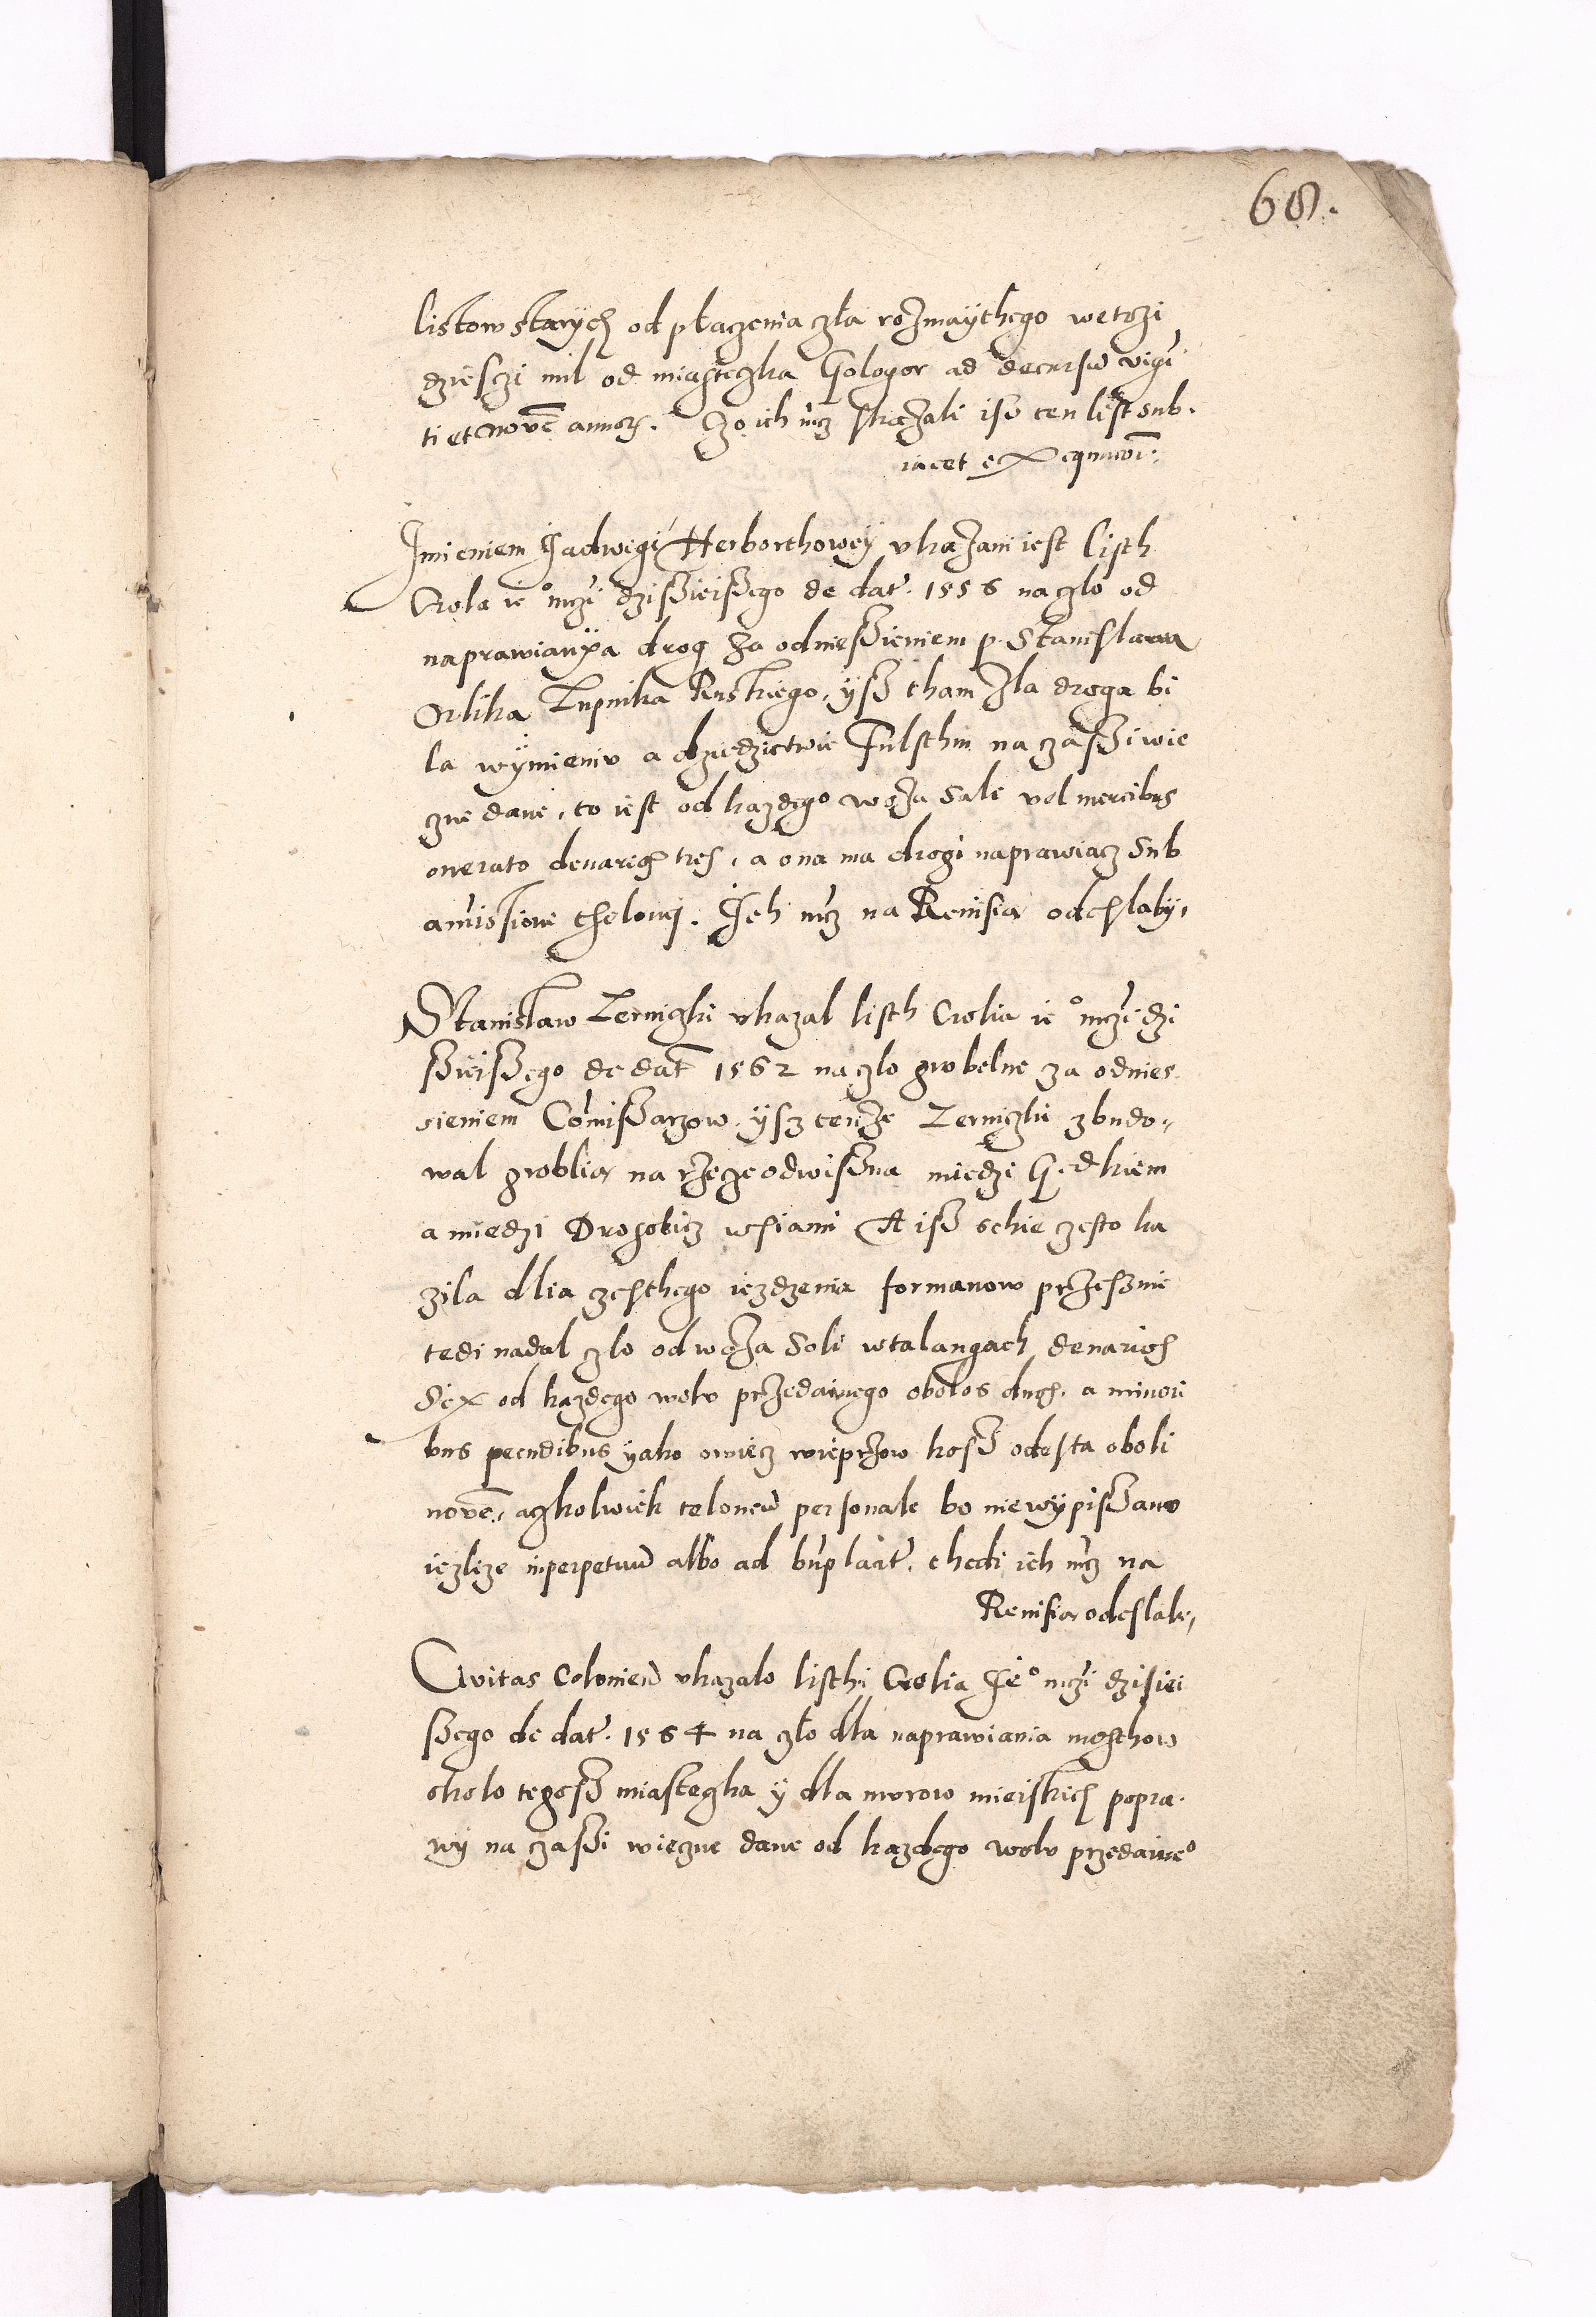 68.
listow starych od płaczenia czła rozmaythego wetrzi
dziesczi mil od miasteczka Gologor ad decursū vigī
ti et novē annor. Czo ich mcz skazali isz ten list sub-
iacet exequucōi.
Imieniem Jadwigi Herborthowey vkazani iest listh
Crola ie° mczi dziszieiszego de dat. 1556 na czlo od
naprawianya drog za odnieszieniem p. Stanislawa
Orlika Zupnika Ruskiego, ysz tham zla droga bi
la wymieniv a dziedzictwie Fulsthin na czaszi wie
czne dane, to iest od kazdego woza sale vel mercibus
onerato denarios tres, a ona ma drogi naprawiacz sub
amissione thelonei. Ich mcz na Revisia odeslaly,
Stanislaw Zerniczki vkazal listh Crolia ie° mczi dzi
szieiszego de dat 1562 na czlo grobelne za odnies-
sieniem Comiszarzow, ysz tenze Zerniczki zbudo-
wal groblia na rzecze odwiszna miedzi G.dkiem
a miedzi Drosobicz wsiami A isz schie czesto ka
zila dlia czesthego iezdzenia formanow przesznie
tedi nadal czlo od woza Soli w talangach denarios
Sex od kazdego wolv przedainego obolos duos, a minori
bus pecudibus yako owiecz wieprzow kosz od esta oboli
novē, aczkolwiek teloneū personale bo nie wypiszano
iezlize in perpetuū albo ad bn̄placit. thedi ich mcz na
Revisia odeslali,
Civitas Colomien̄ vkazalo listhi Crolia Je° mczi dzisiei
szego de dat. 1564 na czlo dla naprawiania mosthow
okolo tegosz miasteczka y dla murow mieiskich popra-
wy na czaszi wieczne dane od kazdego wolv przedaine°